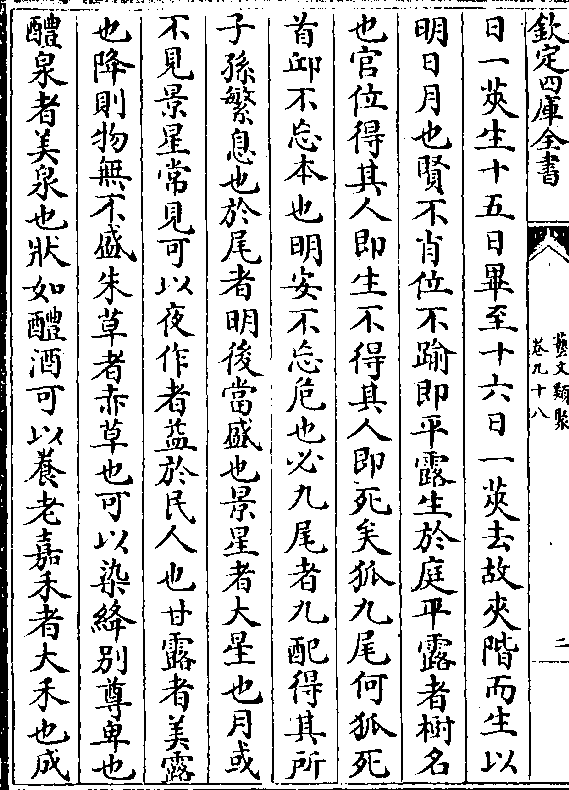 欽定四庫全書
藝文類聚
卷九十八
二
日一莢生十五日畢至十六日一莢去故夾階而生以
明日月也賢不肖位不踰即平露生於庭平露者樹名
也官位得其人即生不得其人即死矣狐九尾何狐死
首邱不忘本也明安不忘危也必九尾者九配得其所
子孫繁息也於尾者明後當盛也景星者大星也月或
不見景星常見可以夜作者益於民人也甘露者美露
也降則物無不盛朱草者赤草也可以染絳別尊卑也
醴泉者美泉也狀如醴酒可以養老嘉禾者大禾也成